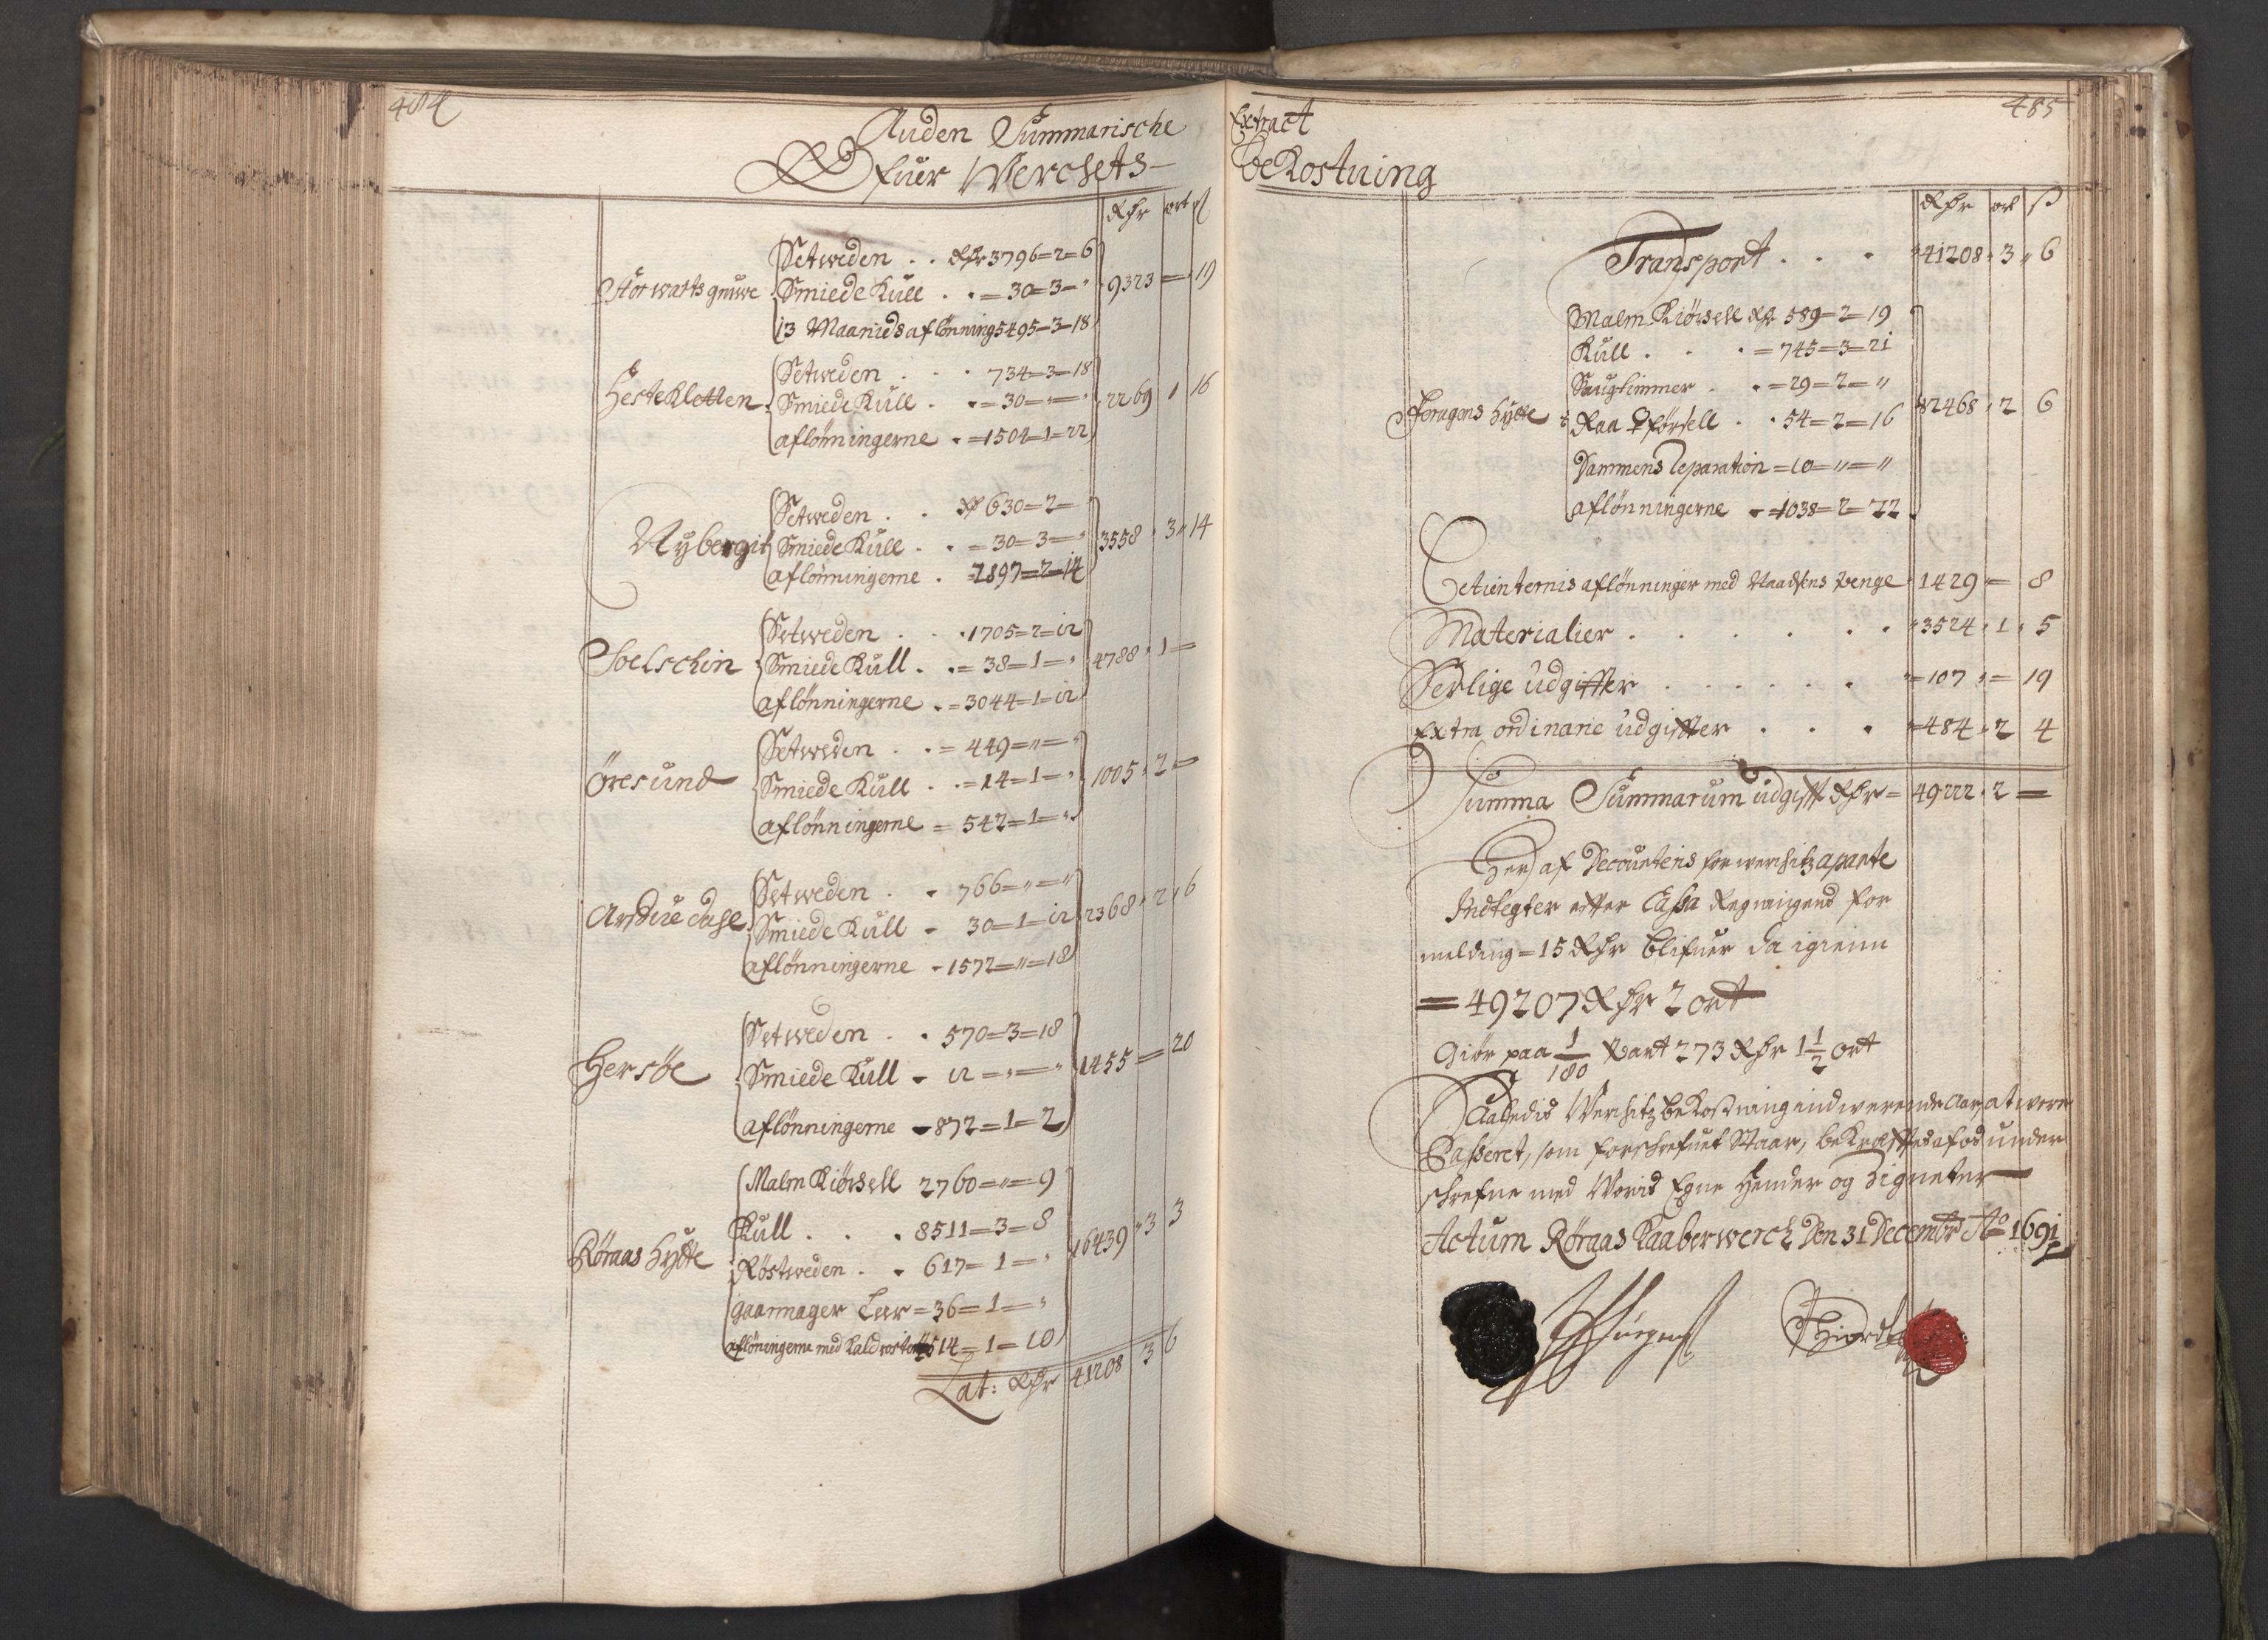 484
Anden Summarische
Ofuer Werchets-
Rdr ort ß
Storwarts gruwe
Setweden . . Rdr 3796=2=6
Smiede Kull . . = 30=3= "
13 Maanids aflønning 5495=3=18
9323 = 19
Hestekletten
Setweden . . . 734=3=18
Smiede Kull . . = 30="="
aflønningerne . =1504=1=22
2269 1 16
Nybergit
Setweden . . Rdr 630=2=
Smiede Kull . . = 30=3="
aflønningerne . 2897=2=14
3558 " 3 " 14
Soelschin
Setweden . . . 1705=2=12
Smiede Kull . . = 38=1="
aflønningerne . = 3044=1=12
4788 " 1 =
Öresund
Setweden . . = 449="="
Smiede Kull . . = 14=1="
aflønningerne = 542=1="
1005 " 2 =
Setweden . . 766="="
Smiede Kull - 30=1=12
aflønningerne - 1572="=18
2368 " 2 " 6
Hersöe
Setweden . . 570=3=18
Smiede Kull - 12="="
aflønningerne - 872=1=2
1455 = 20
Røraas Hytte
Malm Kiörsell 2760="=9
Kull . . . 8511=3=8
Röstweden . . 617=1="
Gaarmager Leer = 36=1="
aflöningerne med 4514=1=10
16439 " 3 3
Lat: Rdr 41208 3 6
485
Extract
bekostning
Rdr ort ß
Transport . . . 41208 " 3 " 6
Malm Kiörsell Rdr 589=2=19
Kull . . . = 745=3=21
Saugtimmer . . = 29=2="
Raa ♀ försell . . 54=2=16
Dammens Reparation = 10="="
aflønningerne = 1038=2=22
Hytte
2468 " 2 6
aflønninger med Naadsens penge 1429 = 8
Materialier . . . . . . 3524 " 1 " 5
Serlige udgiffter . . . . . . = 107 " = 19
Extra ordinarie udgiffter . . . = 484 " 2 4
Summa Summarum udgifft Rdr = 49222 " 2 =
Her af Decourteris for werchitz aparte
Indtegter effter Cassa Regningens for
melding = 15 Rdr blifuer da igienn
= 49207 Rdr 2 ort
Giör paa 1/180 Part 273 Rdr 1 1/2 ort
Saaledis Werchitz bekostning indwerende Aar, at were
Passeret, som forschrefuet Staar, bekrefftes af os under
schrefne med Woris Egne Hender og Zigneter
Actum Røraas Kaaberwerch Den 31 Decembr Ao 1691